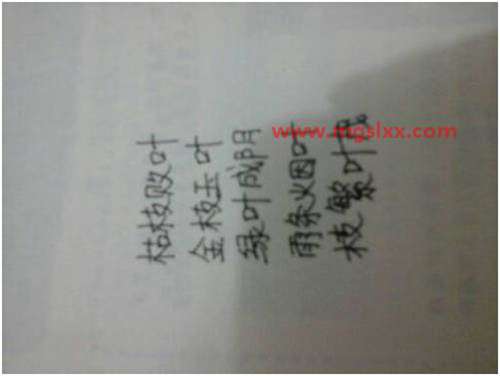 枯枝败叶
金枝玉叶
绿叶成阴
雨条烟叶
枝繁叶茂
www.mgslxx.com